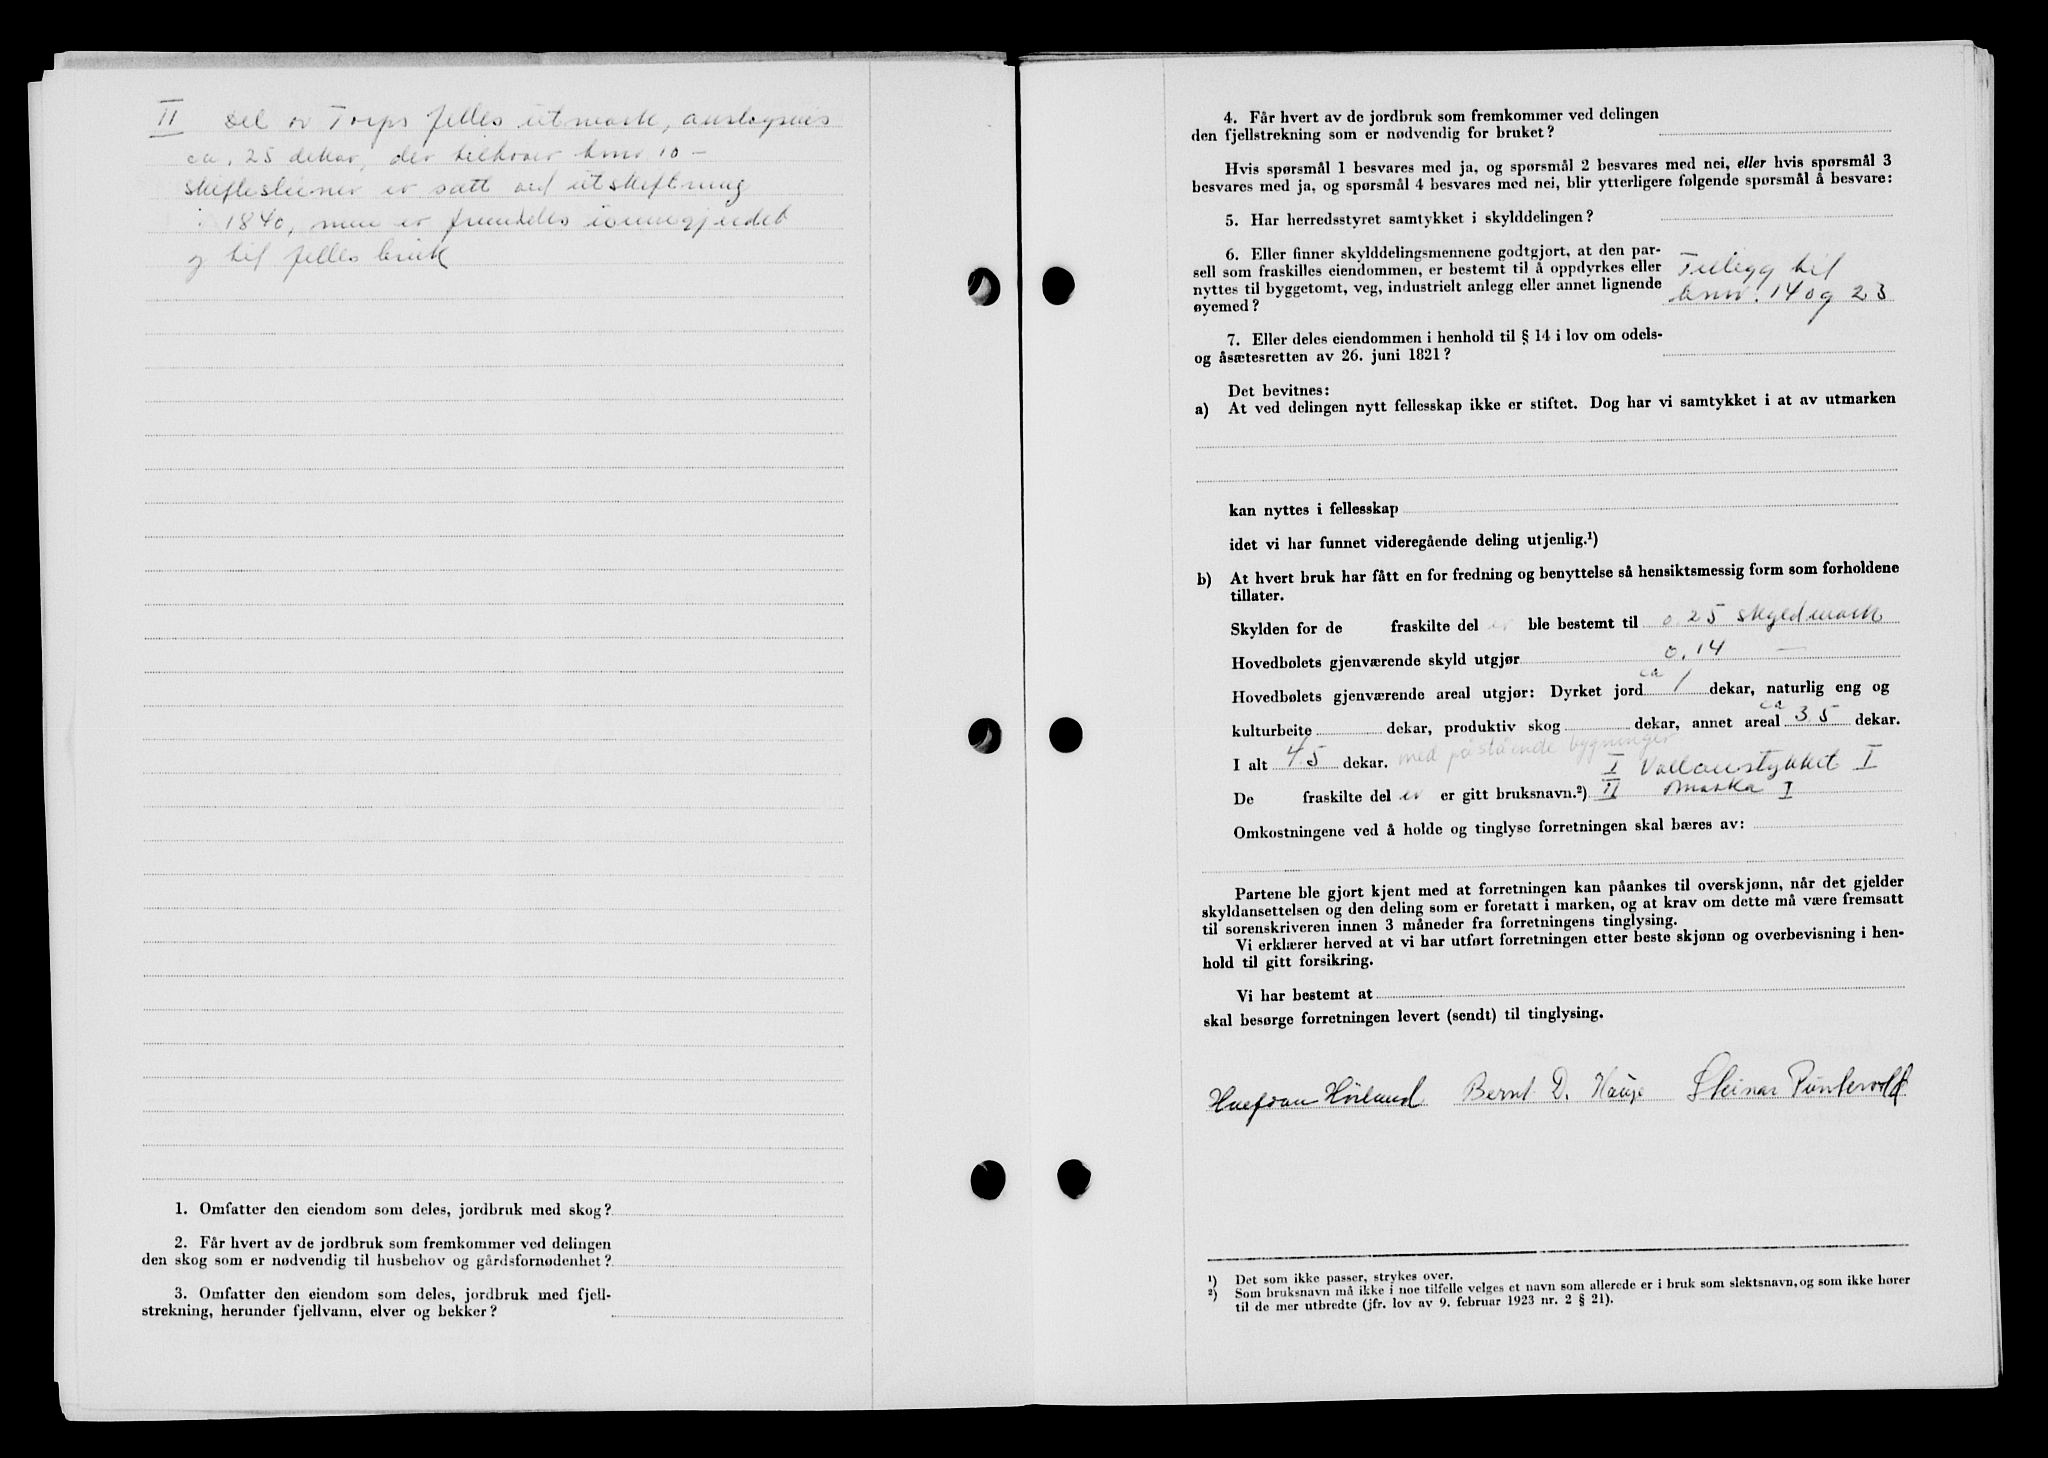 II Del av Torps felles utmark, anslagsvis
ca. 25 dekar, der tilhører bnr 10 –
skiftesteiner er satt ved utskiftning
i 1840, men er fremdeles uinngjerdet
og til felles bruk
1. Omfatter den eiendom som deles, jordbruk med skog?
2. Får hvert av de jordbruk som fremkommer ved delingen
den skog som er nødvendig til husbehov og gårdsfornødenhet?
3. Omfatter den eiendom som deles, jordbruk med fjell-
strekning, herunder fjellvann, elver og bekker?
4. Får hvert av de jordbruk som fremkommer ved delingen
den fjellstrekning som er nødvendig for bruket?
Hvis spørsmål 1 besvares med ja, og spørsmål 2 besvares med nei, eller hvis spørsmål 3
besvares med ja, og spørsmål 4 besvares med nei, blir ytterligere følgende spørsmål å besvare:
5. Har herredsstyret samtykket i skylddelingen?
6. Eller finner skylddelingsmennene godtgjort, at den par-
sell som fraskilles eiendommen, er bestemt til å oppdyrkes eller
nyttes til byggetomt, veg, industrielt anlegg eller annet lignende
øyemed?
Tillegg til
bnr. 14 og 23
7. Eller deles eiendommen i henhold til § 14 i lov om odels-
og åsætesretten av 26. juni 1821?
Det bevitnes:
a) At ved delingen nytt fellesskap ikke er stiftet. Dog har vi samtykket i at av utmarken
kan nyttes i fellesskap
idet vi har funnet videregående deling utjenlig.¹)
b) At hvert bruk har fått en for fredning og benyttelse så hensiktsmessig form som forholdene
tillater.
Skylden for de fraskilte del er ble bestemt til 0.25 skyldmark
Hovedbølets gjenværende skyld utgjør 0.14 —
Hovedbølets gjenværende areal utgjør: Dyrket jord ca 1 dekar, naturlig eng og
kulturbeite dekar, produktiv skog dekar, annet areal ca 3.5 dekar.
I alt 4.5 dekar. med påstående bygninger
I Vollanstykket I
De fraskilte del er er gitt bruksnavn.²) II Marka I
Omkostningene ved å holde og tinglyse forretningen skal bæres av:
Partene ble gjort kjent med at forretningen kan påankes til overskjønn, når det gjelder
skyldansettelsen og den deling som er foretatt i marken, og at krav om dette må være fremsatt
til sorenskriveren innen 3 måneder fra forretningens tinglysing.
Vi erklærer herved at vi har utført forretningen etter beste skjønn og overbevisning i hen-
hold til gitt forsikring.
Vi har bestemt at
skal besørge forretningen levert (sendt) til tinglysing.
Hørland Bernt D. Hauge Steinar Puntervold
¹) Det som ikke passer, strykes over.
²) Som bruksnavn må ikke i noe tilfelle velges et navn som allerede er i bruk som slektsnavn, og som ikke hører
til de mer utbredte (jfr. lov av 9. februar 1923 nr. 2 § 21).